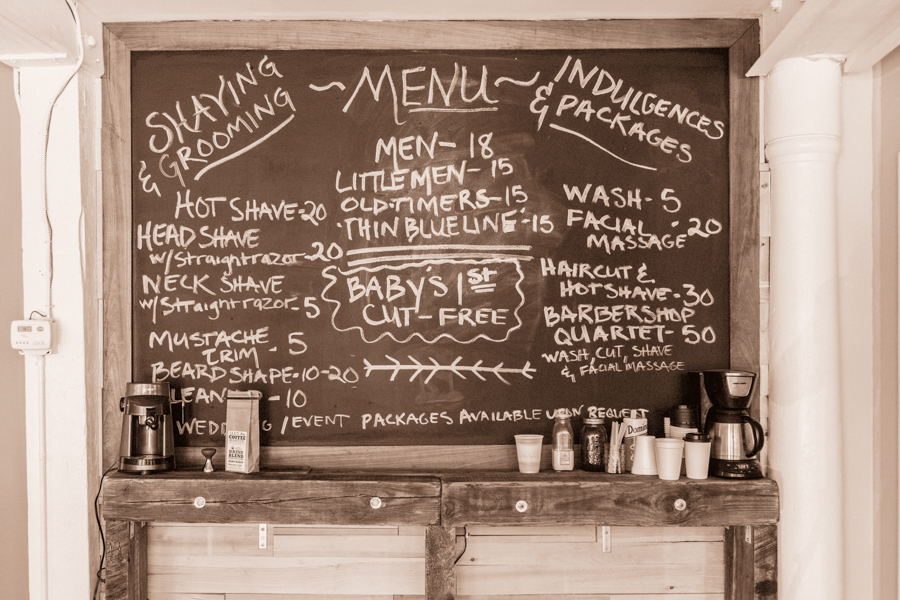 SHAVING
& GROOMING
HOT SHAVE-20
HEAD SHAVE
w/Straightrazor-20
NECK SHAVE
w/Straightrazor-5
MUSTACHE
TRIM - 5
BEARD SHAPE-10-20
- 10
~MENU~
MEN- 18
LITTLE MEN- 15
OLD-TIMERS-15
THIN BLUE LINE-15
BABY'S 1st
CUT-FREE
INDULGENCES
& PACKAGES
WASH- 5
FACIAL
MASSAGE -20
HAIRCUT &
HOT SHAVE-30
BARBERSHOP
QUARTET- 50
WASH, CUT, SHAVE
& FACIAL MASSAGE
/EVENT PACKAGES AVAILABLE UPON REQUEST
COFFEE
Domin